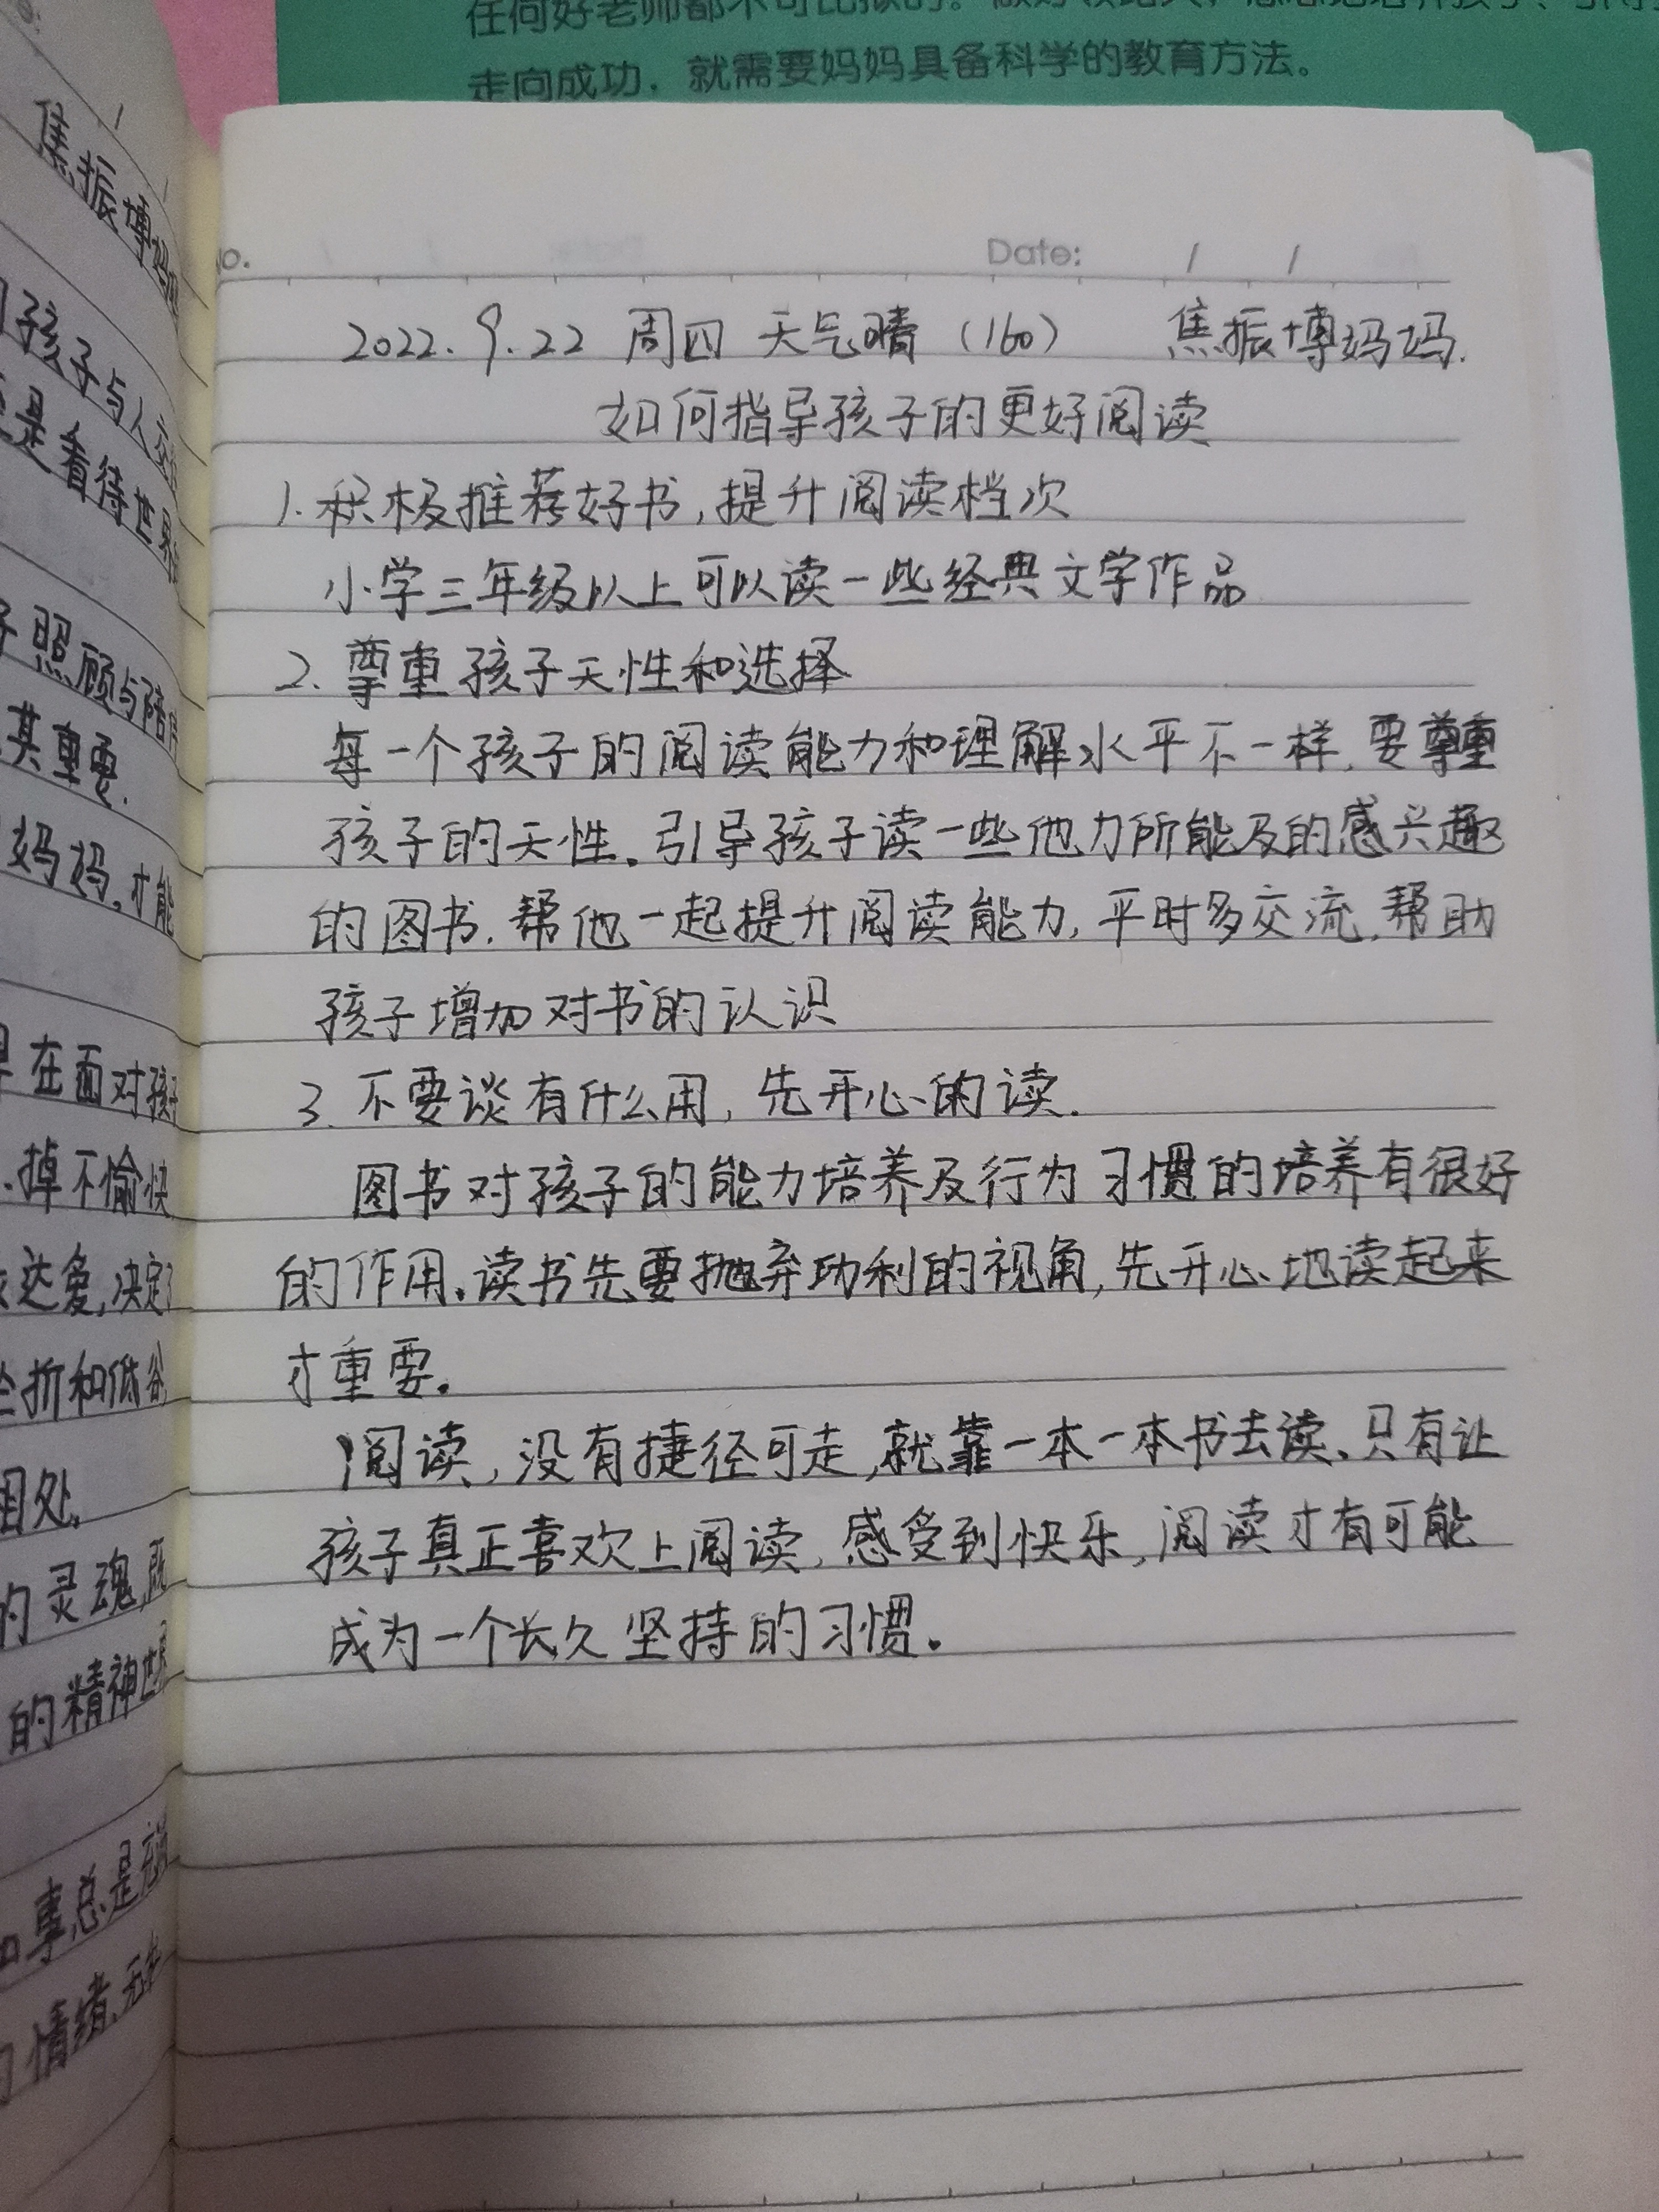 任何好老师都不可比拟的。
走向成功，就需要妈妈具备科学的教育方法。
焦振博妈妈
孩子与人交
是看待世界
照顾与陪伴
其重要.
妈妈,才能
在面对孩子
掉不愉快
达爱,决定了
折和低谷
相处,
的灵魂,
的精神世界
事总是
情绪,无
Date: / /
2022.9.22 周四 天气晴（160） 焦振博妈妈.
如何指导孩子的更好阅读
1.积极推荐好书,提升阅读档次
小学三年级以上可以读一些经典文学作品
2.尊重孩子天性和选择
每一个孩子的阅读能力和理解水平不一样,要尊重
孩子的天性。引导孩子读一些他力所能及的感兴趣
的图书,帮他一起提升阅读能力,平时多交流,帮助
孩子增加对书的认识
3.不要谈有什么用,先开心的读.
图书对孩子的能力培养及行为习惯的培养有很好
的作用。读书先要抛弃功利的视角,先开心地读起来
才重要。
阅读,没有捷径可走,就靠一本一本书去读、只有让
孩子真正喜欢上阅读,感受到快乐,阅读才有可能
成为一个长久坚持的习惯。